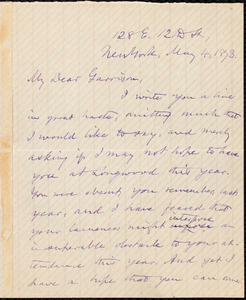 128 E. 12th St,
New York, May 4, 1873.
My Dear Garrison,
I write you a line
in great haste, omitting much that
I would like to say, and merely
asking if I may not hope to have
you at Longwood this year.
You were absent, you remember, last
year, and I have feared that
your lameness might interpose
an
insuperable obstacle to your at-
tendance this year. And yet I
have a hope that you can come